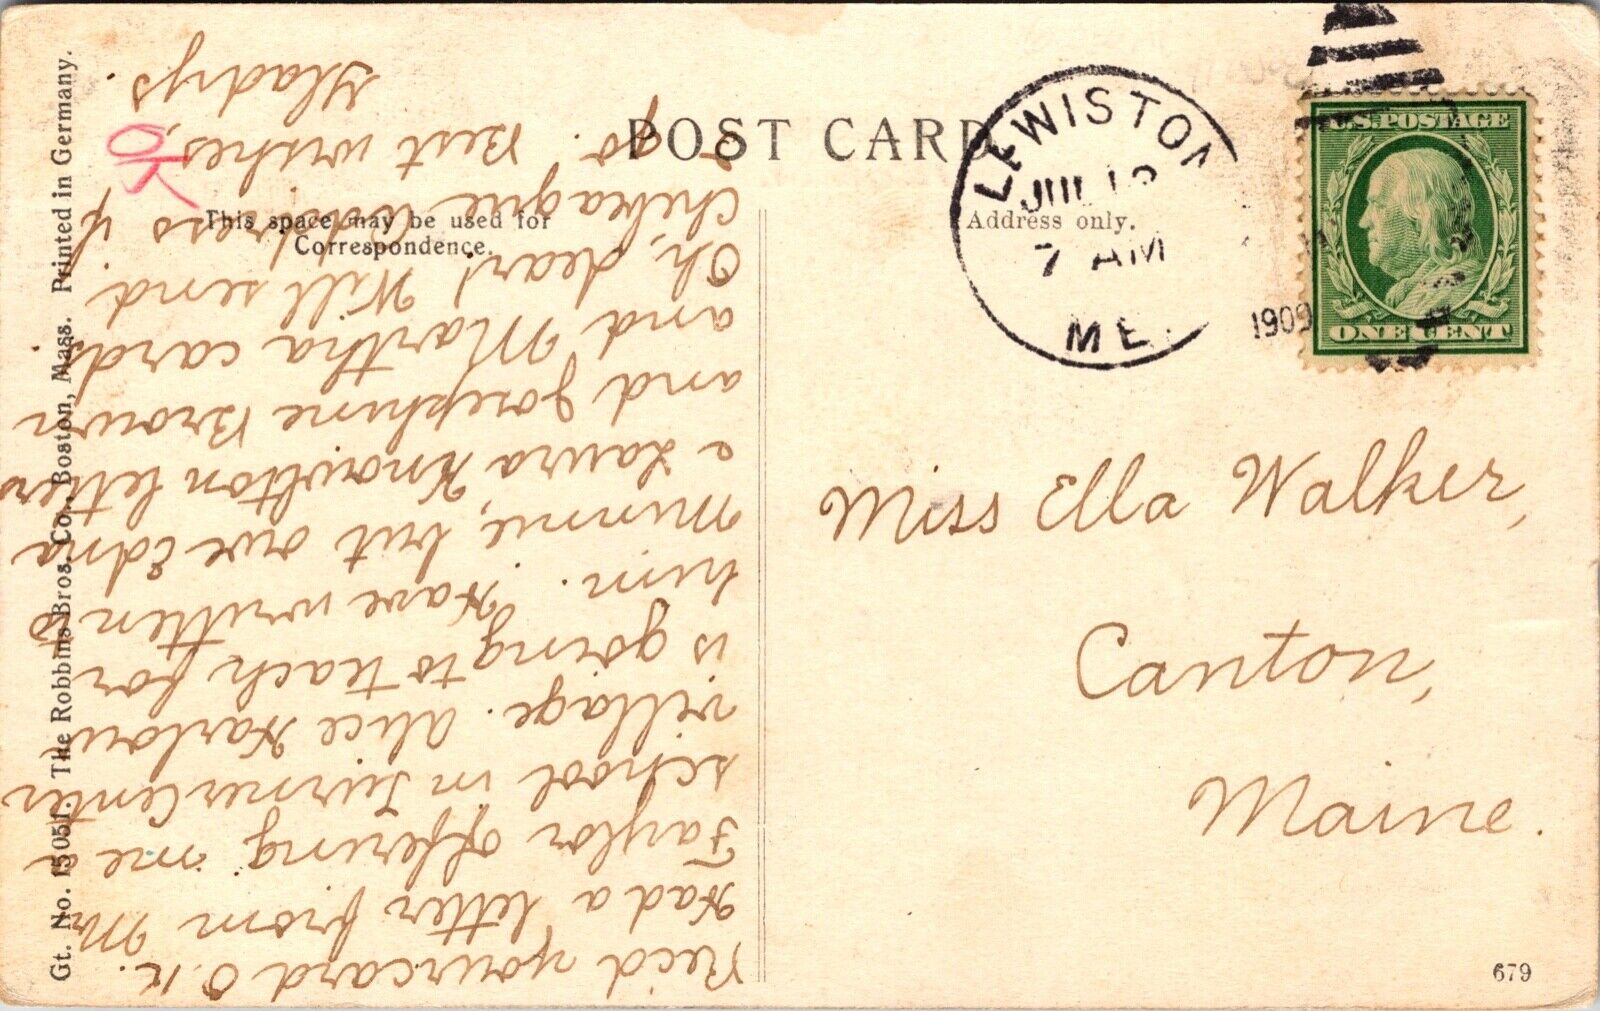 POST CARD
This space may be used for
Correspondence.
Address only.
LEWISTON
JUL
7 AM
ME.
1909
U.S. POSTAGE
ONE CENT
Miss Ella Walker,
Canton,
Maine.
679
Gt. No. 15051. The Robbins Bros. Co., Boston, Mass. Printed in Germany.
OK
Rec'd your card O.K.
Had a letter from Mr
Taylor offering me a
school in Turner Center
village. Alice Harlow
is going to teach for
him. Have written to
Minnie, but owe Edna
e Laura Knowlton letters
and Josephine Brown
and Martha cards.
Oh, dear! Will send
Chebeague address if
I go. Best wishes,
Gladys.